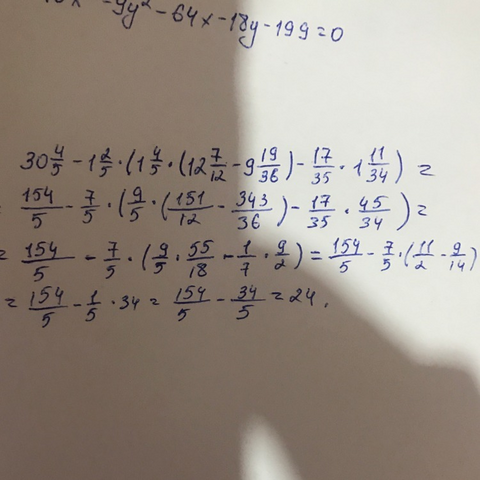 x² - 9y² - 64x - 18y - 199 = 0
30 4/5 - 1 2/5 · (1 4/5 · (12 7/12 - 9 19/36) - 17/35 · 1 11/34) =
= 154/5 - 7/5 · (9/5 · (151/12 - 343/36) - 17/35 · 45/34) =
= 154/5 - 7/5 · (9/5 · 55/18 - 1/7 · 9/2) = 154/5 - 7/5 · (11/2 - 9/14)
= 154/5 - 1/5 · 34 = 154/5 - 34/5 = 24.